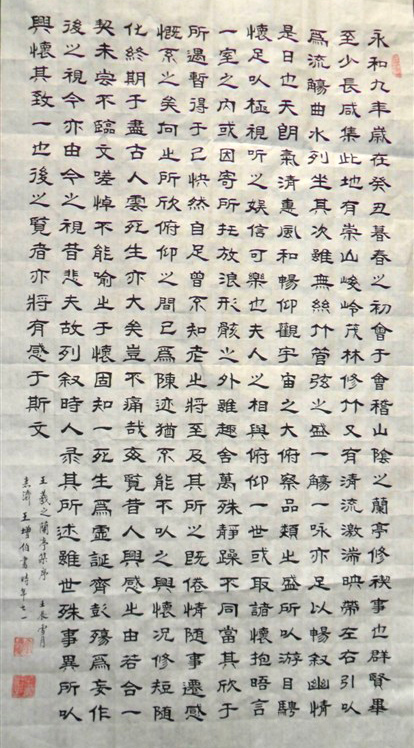 永和九年歲在癸丑暮春之初會于會稽山陰之蘭亭修禊事也群賢畢
至少長咸集此地有崇山峻岭茂林修竹又有清流激湍映帶左右引以
爲流觴曲水列坐其次雖無絲竹管弦之盛一觴一咏亦足以暢叙幽情
是日也天朗氣清惠風和暢仰觀宇宙之大俯察品類之盛所以游目騁
懷足以極視聽之娱信可樂也夫人之相與俯仰一世或取諸懷抱晤言
一室之内或因寄所托放浪形骸之外雖趣舍萬殊静躁不同當其欣于
所遇暫得于己快然自足曾不知老之將至及其所之既倦情隨事遷感
慨系之矣向之所欣俯仰之間已爲陳迹猶不能不以之興懷况修短隨
化終期于盡古人雲死生亦大矣豈不痛哉每覽昔人興感之由若合一
契未嘗不臨文嗟悼不能喻之于懷固知一死生爲虛誕齊彭殤爲妄作
後之視今亦由今之視昔悲夫故列叙時人录其所述雖世殊事異所以
興懷其致一也後之覽者亦將有感于斯文
王羲之蘭亭集序 壬辰雪月
濟 王增伯書時年七一